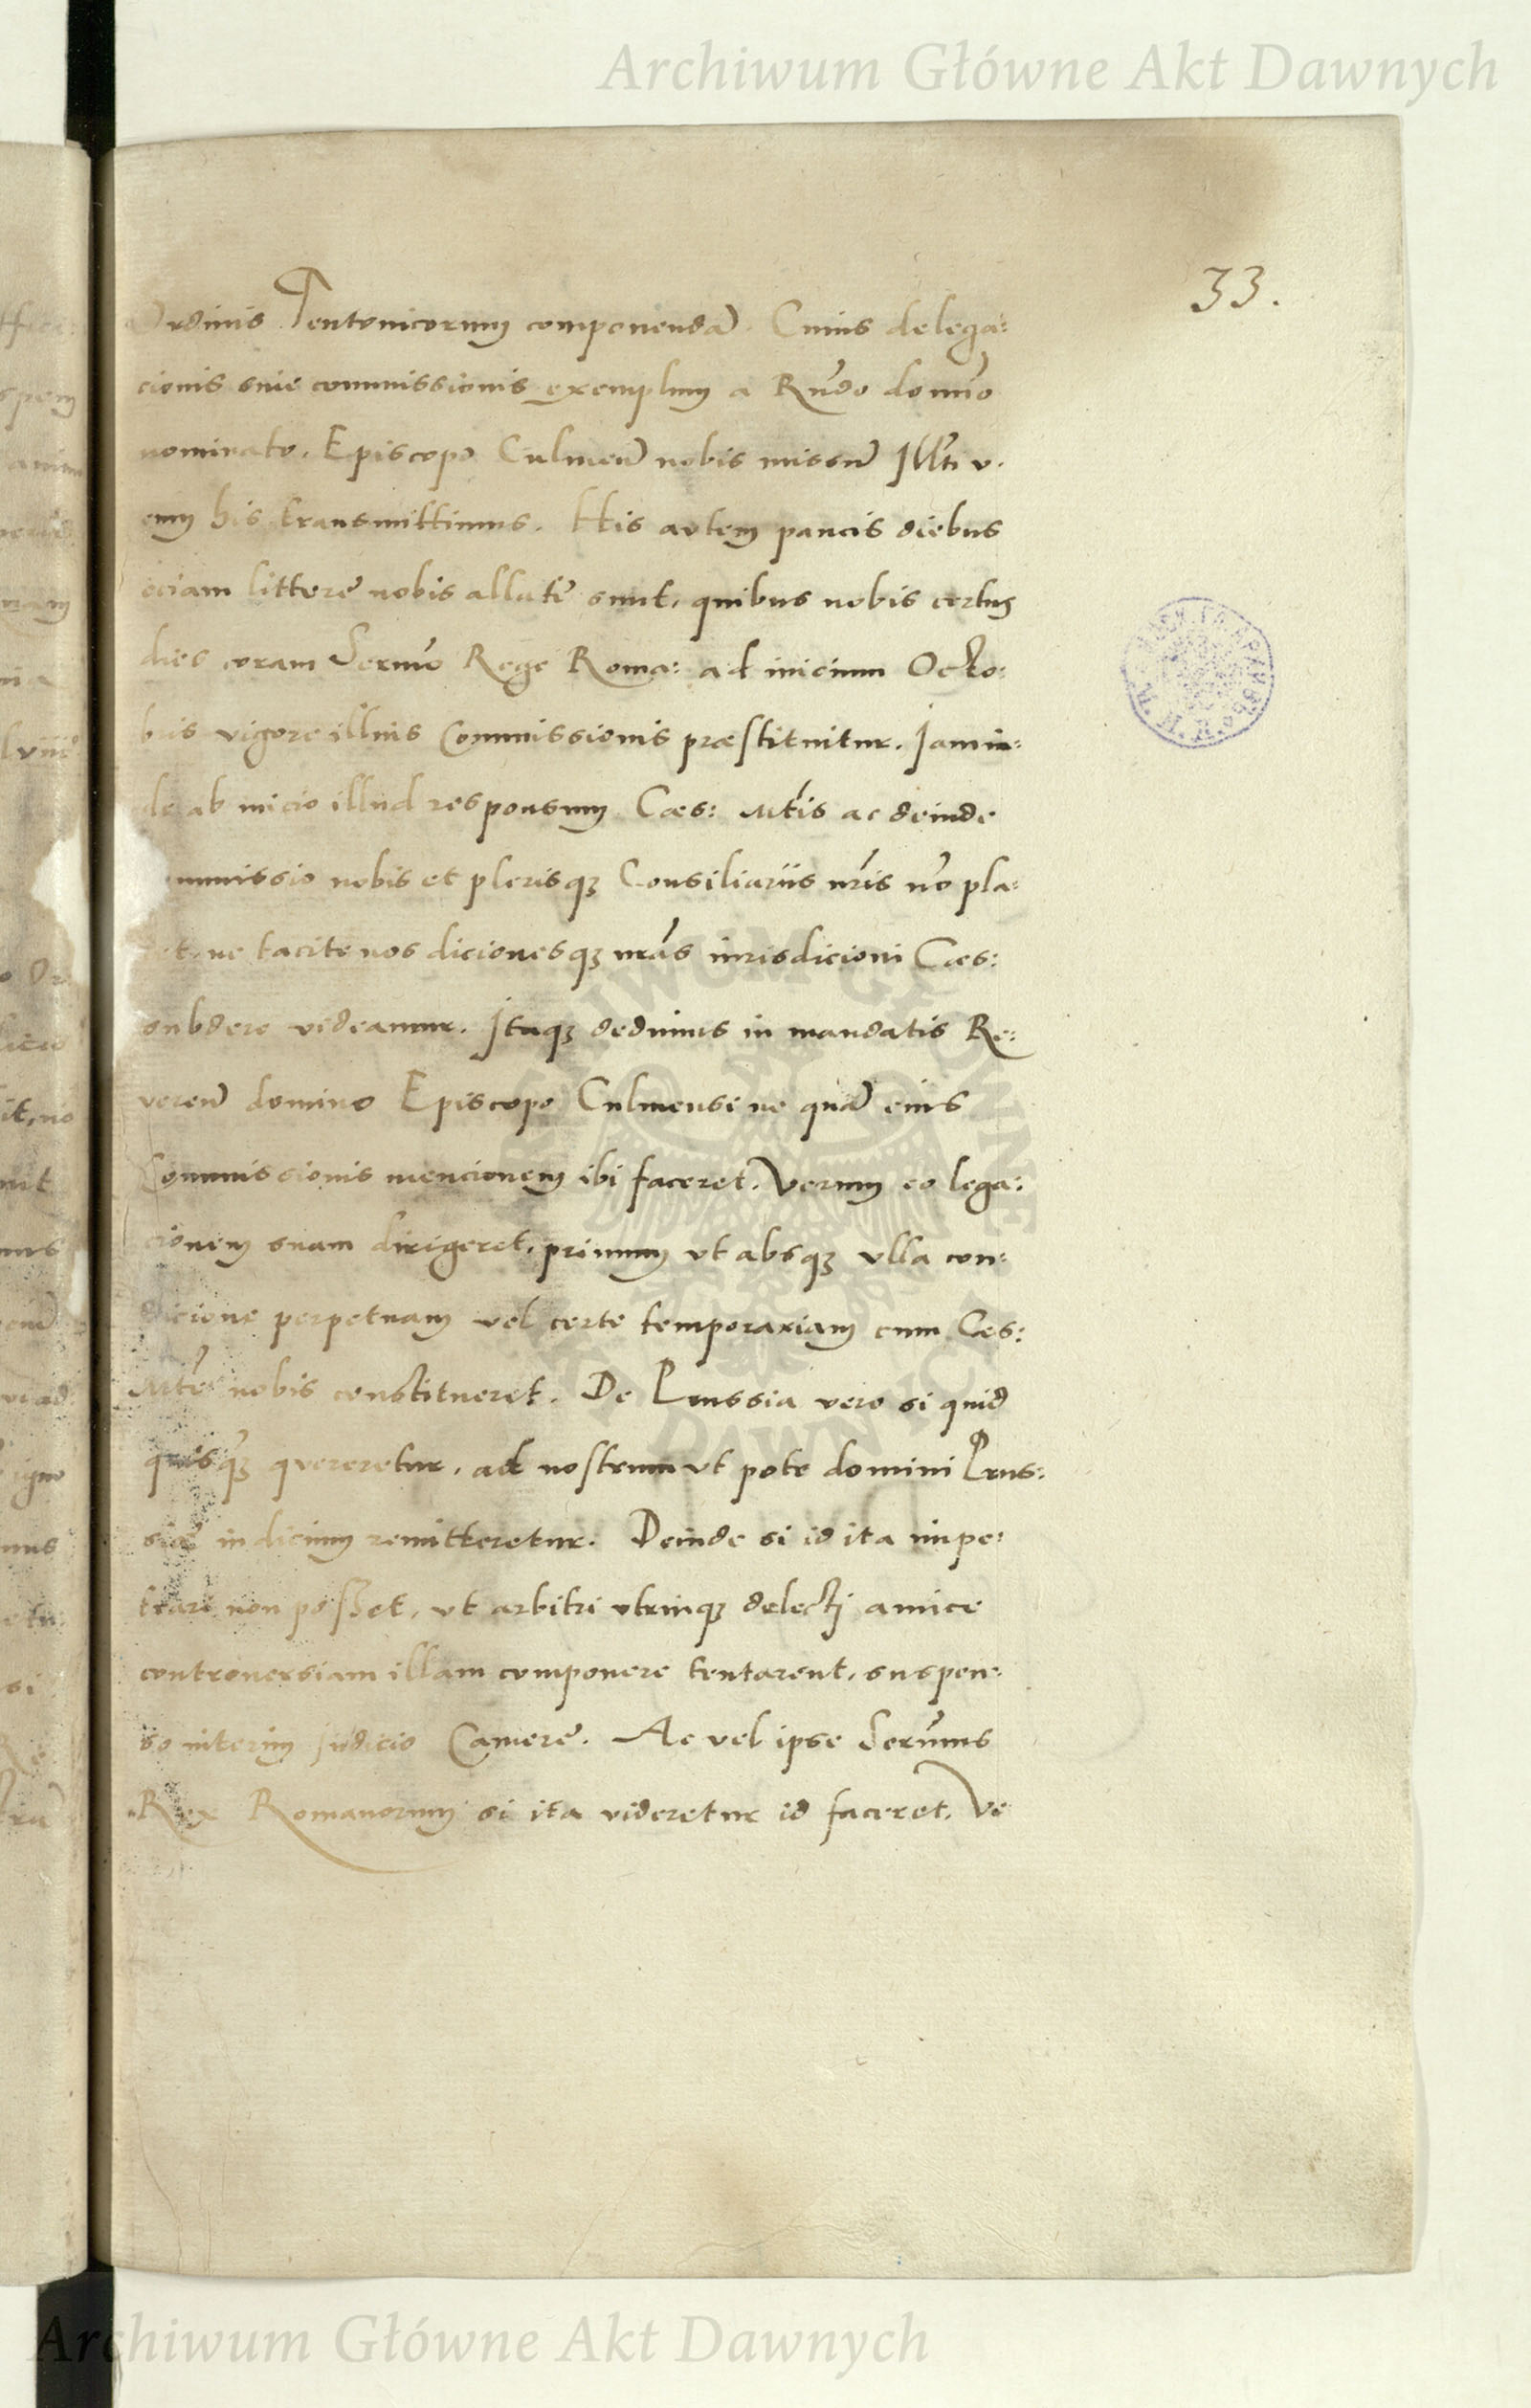 Archiwum Główne Akt Dawnych
33.
Ordinis Teutonicorum componendā. Cuius delega:
cionis siue commissionis exemplum a Rńdo domīo
nominato, Episcopo Culmeń nobis missū Illti v.
em his transmittimus. His autem paucis diebus
eciam litterę nobis allatę sunt, quibus nobis certus
dies coram Sermo Rege Roma: ad inicium Octo:
bris vigore illius Commissionis præstituitur. Iam in:
de ab inicio illud responsum Cæs: Mtis ac deinde
mmissio nobis et plerisq; Consiliariis nr̃is nō pla:
et, ne tacite nos dicionesq; nrãs iurisdicioni Cæs:
subdere videamur. Itaq; dedimus in mandatis Re:
vereń domino Episcopo Culmensi ne quā eius
Commissionis mencionem ibi faceret. Verum eo lega:
cionem suam dirigeret, primum vt absq; vlla con:
dicione perpetuam vel certe temporariam cum Cæs:
Mte nobis constitueret. De Prussia vero si quid
quisq; quereretur, ad nostrum vt pote domini Prus:
siæ iudicium remitteretur. Deinde si id ita impe:
trari non posset, vt arbitri vtrinq; delecti amice
controuersiam illam componere tentarent, suspen:
so interim iudicio Camerę. Ac vel ipse Sermus
Rex Romanorum si ita videretur id faceret. Ve
Archiwum Główne Akt Dawnych